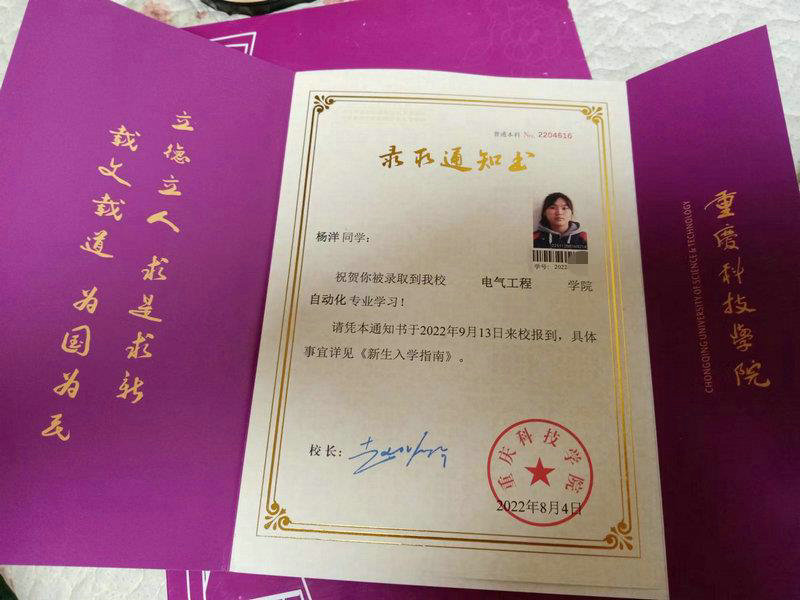 立德立人 求是求新
载文载道 为国为民
普通本科 No. 2204616
录取通知书
杨洋 同学：
学号： 2022
祝贺你被录取到我校 电气工程 学院
自动化 专业学习！
请凭本通知书于2022年9月13日来校报到，具体
事宜详见《新生入学指南》。
校长：
重庆科技学院
2022年8月4日
重庆科技學院
CHONGQING UNIVERSITY OF SCIENCE & TECHNOLOGY